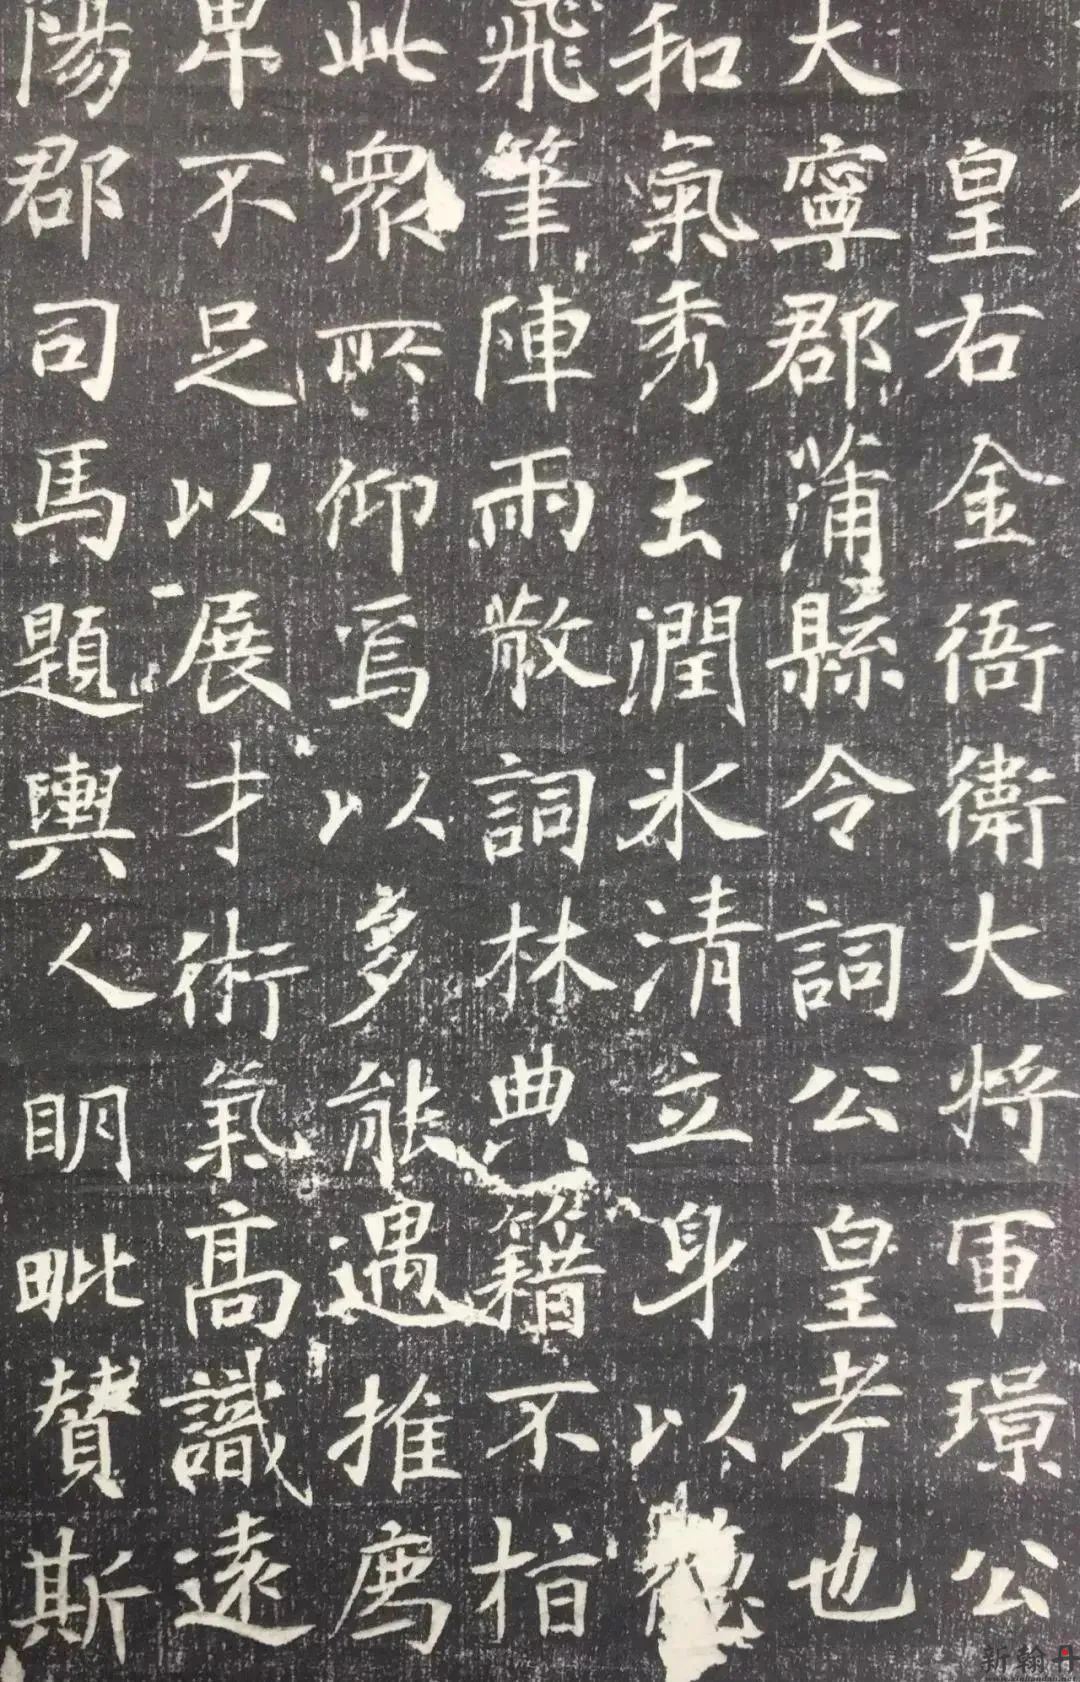 皇右金衙衛大将軍璟公
大寧郡蒲縣令詞公皇考也
和氣秀玉潤氷清立身以德
飛筆陣雨散詞林典籍不指
此衆所仰焉以多能遇推為
卑不足以展才術氣髙識遠
陽郡司馬題輿人明毗賛斯
新翰丹